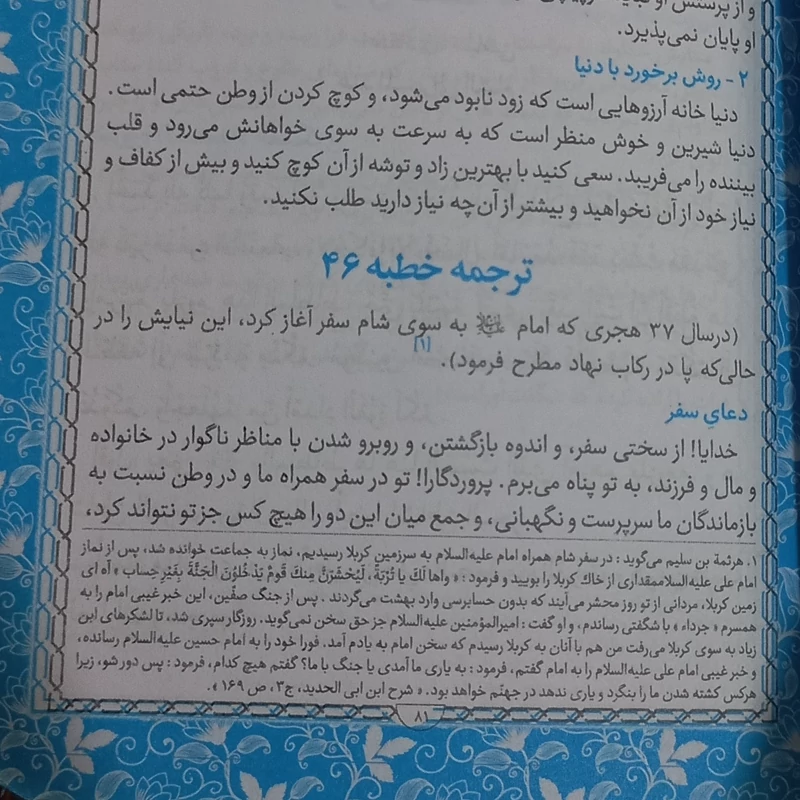 و از پرستش او
او پایان نمی‌پذیرد.
۲ - روش برخورد با دنیا
دنیا خانه آرزوهایی است که زود نابود می‌شود، و کوچ کردن از وطن حتمی است.
دنیا شیرین و خوش منظر است که به سرعت به سوی خواهانش می‌رود و قلب
بیننده را می‌فریبد. سعی کنید با بهترین زاد و توشه از آن کوچ کنید و بیش از کفاف و
نیاز خود از آن نخواهید و بیشتر از آن چه نیاز دارید طلب نکنید.
ترجمه خطبه ۴۶
(درسال ۳۷ هجری که امام علیه‌السلام به سوی شام سفر آغاز کرد، این نیایش را در
حالی‌که پا در رکاب نهاد مطرح فرمود).[۱]
دعای سفر
خدایا! از سختی سفر، و اندوه بازگشتن، و روبرو شدن با مناظر ناگوار در خانواده
و مال و فرزند، به تو پناه می‌برم. پروردگارا! تو در سفر همراه ما و در وطن نسبت به
بازماندگان ما سرپرست و نگهبانی، و جمع میان این دو را هیچ کس جز تو نتواند کرد،
۱. هرثمة بن سلیم می‌گوید : در سفر شام همراه امام علیه‌السلام به سرزمین کربلا رسیدیم، نماز به جماعت خوانده شد، پس از نماز
امام علی علیه‌السلاممقداری از خاك کربلا را بویید و فرمود : « واها لَكَ یا تُرْبَةُ، لَیُحْشَرَنَّ مِنكَ قَومٌ یَدْخُلُونَ الْجَنَّةَ بِغَیْرِ حِساب » آه ای
زمین کربلا، مردانی از تو روز محشر می‌آیند که بدون حسابرسی وارد بهشت می‌گردند . پس از جنگ صفّین، این خبر غیبی امام را به
همسرم « جرداء » با شگفتی رساندم، و او گفت : امیرالمؤمنین علیه‌السلام جز حق سخن نمی‌گوید. روزگار سپری شد، تا لشکرهای ابن
زیاد به سوی کربلا می‌رفت من هم با آنان به کربلا رسیدم که سخن امام به یادم آمد. فورا خود را به امام حسین علیه‌السلام رسانده،
و خبر غیبی امام علی علیه‌السلام را به امام گفتم، فرمود : به یاری ما آمدی یا جنگ با ما؟ گفتم هیچ کدام، فرمود : پس دور شو، زیرا
هرکس کشته شدن ما را بنگرد و یاری ندهد در جهنّم خواهد بود. « شرح ابن ابی الحدید، ج۳، ص ۱۶۹ ».
۸۱